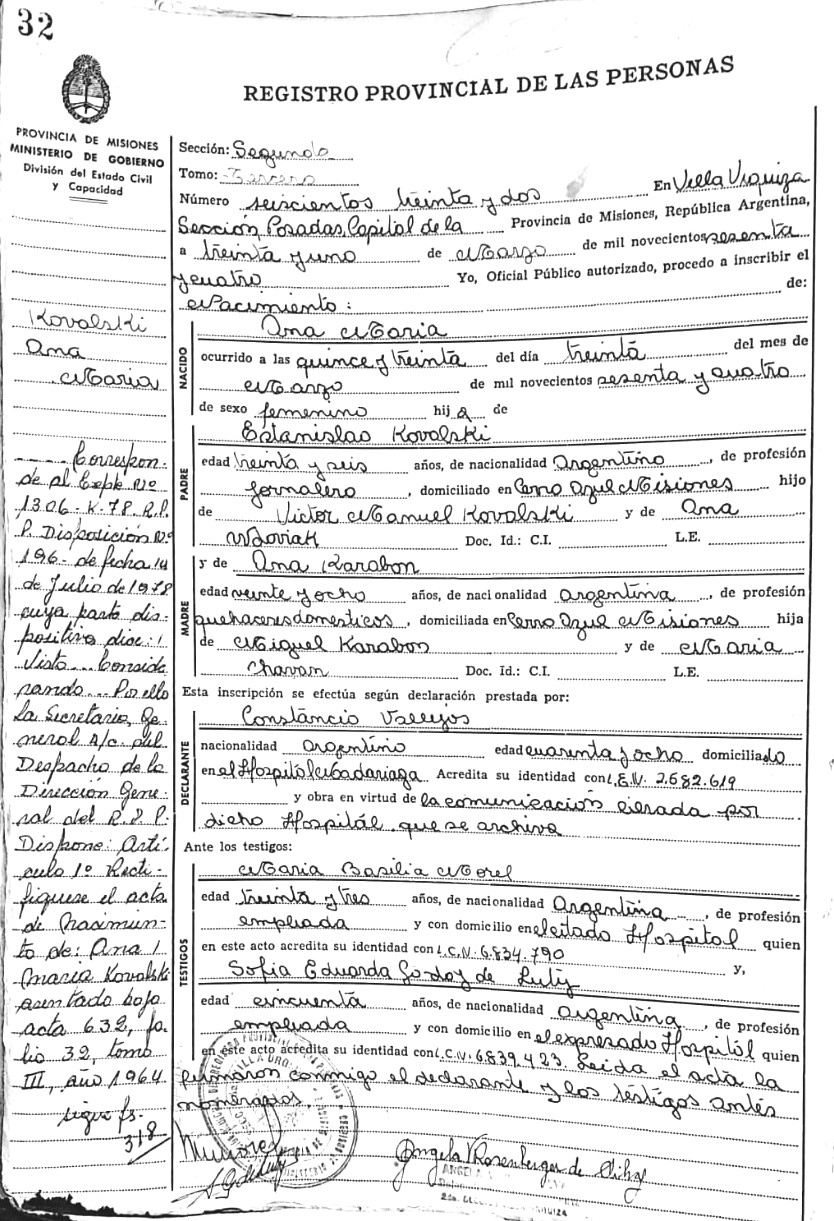 32
REGISTRO PROVINCIAL DE LAS PERSONAS
PROVINCIA DE MISIONES
MINISTERIO DE GOBIERNO
División del Estado Civil
y Capacidad
Kovalski
Ana
Maria
Correspon-
de al Expte Nº
1306-K-78 R.P.
P. Disposición Nº
196- de fecha 14
de Julio de 1978
cuya parte dis-
positiva dice:
Visto... Conside
rando... Por ello
La Secretaria Ge
neral A/c. del
Despacho de la
Dirección Gene-
ral del R.P.P.
Dispone: Artí-
culo 1º Recti-
fíquese el acta
de Nacimien-
to de: Ana
María Kovalski
asentado bajo
acta 632, fo-
lio 32, tomo
III, año 1964
sigue fs.
318
Sección: Segunda
Tomo: Tercero
Número seiscientos treinta y dos En Villa Urquiza
Sección Posadas, Capital de la Provincia de Misiones, República Argentina,
a treinta y uno de Marzo de mil novecientos sesenta
y cuatro Yo, Oficial Público autorizado, procedo a inscribir el
de:
Nacimiento:
NACIDO
Ana Maria
ocurrido a las quince y treinta del día treinta del mes de
Marzo de mil novecientos sesenta y cuatro
de sexo femenino hija de
PADRE
Estanislao Kovalski
edad treinta y seis años, de nacionalidad Argentino, de profesión
Jornalero, domiciliado en Cerro Azul Misiones hijo
de Victor Manuel Kovalski y de Ana
Woviak Doc. Id.: C.I. L.E.
y de Ana Karabon
MADRE
edad veinte y ocho años, de nacionalidad argentina, de profesión
quehaceres domesticos, domiciliada en Cerro Azul Misiones hija
de Miguel Karabon y de Maria
Chavan Doc. Id.: C.I. L.E.
Esta inscripción se efectúa según declaración prestada por:
DECLARANTE
Constancio Vallejos
nacionalidad argentino edad cuarenta y ocho domiciliado
en el Hospital Madariaga Acredita su identidad con L.E.N. 2.582.619
y obra en virtud de la comunicación elevada por
dicho Hospitál que se archiva
Ante los testigos:
TESTIGOS
Maria Basilia Morel
edad treinta y tres años, de nacionalidad Argentina, de profesión
empleada y con domicilio en el citado Hospital quien
en este acto acredita su identidad con L.C.N. 6.834.790
y,
Sofia Eduarda Godoy de Luty
edad cincuenta años, de nacionalidad argentina, de profesión
empleada y con domicilio en el expresado Hospitál quien
en este acto acredita su identidad con L.C.N. 6.839.423. Leida el acta la
firmaron conmigo el declarante y los testigos antes
nombrados.